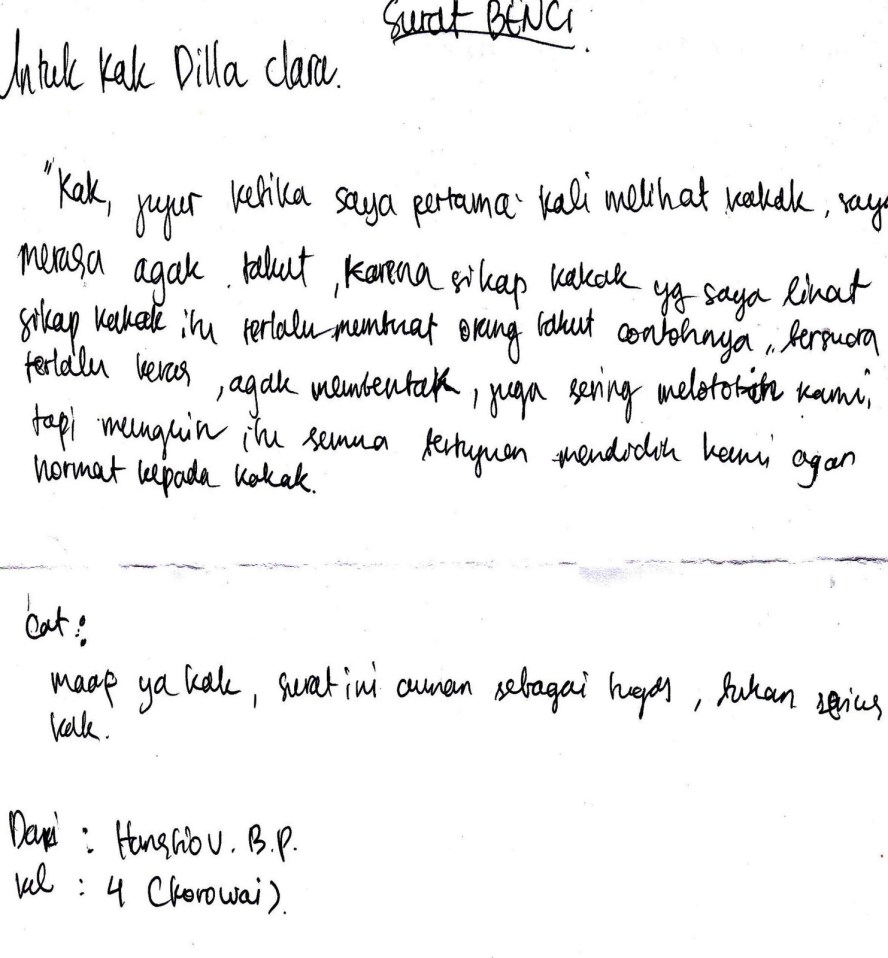 Surat BENCi.
Untuk Kak Dilla clara.
"Kak, jujur ketika saya pertama kali melihat kakak, saya
merasa agak takut, karena sikap kakak yg saya lihat
sikap kakak itu terlalu membuat orang takut contohnya, bersuara
terlalu keras, agak membentak, juga sering melototin kami,
tapi mungkin itu semua bertujuan mendidik kami agar
hormat kepada kakak.
Cat :
maap ya kak, surat ini cuman sebagai tugas, bukan serius
kak.
Dari : V. B.P.
kel : 4 (korowai)